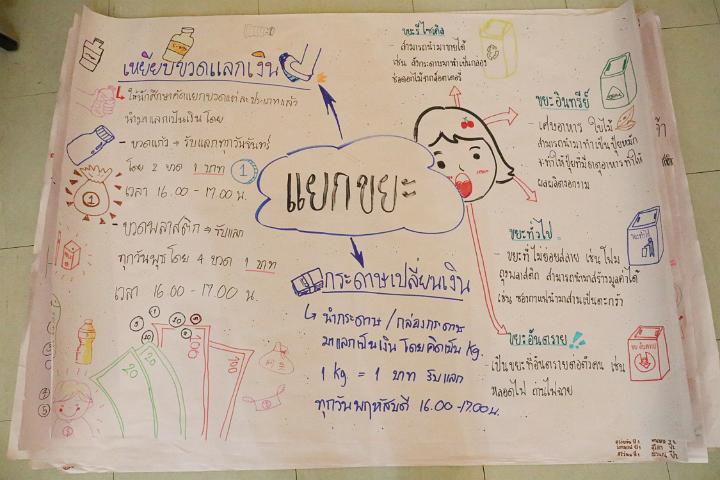 เหยียบขวดแลกเงิน
↳ ให้นักศึกษาคัดแยกขวดแต่ละประเภทแล้ว
นำมาแลกเป็นเงินโดย
- ขวดแก้ว → รับแลกทุกวันจันทร์
โดย 2 ขวด 1 บาท 1
เวลา 16.00 - 17.00 น.
1
- ขวดพลาสติก → รับแลก
ทุกวันพุธโดย 4 ขวด 1 บาท
เวลา 16.00 - 17.00 น.
20
20
100
100
แยกขยะ
กระดาษเปลี่ยนเงิน
↳ นำกระดาษ / กล่องกระดาษ
มาแลกเป็นเงิน โดยคิดเป็น Kg.
1 Kg = 1 บาท รับแลก
ทุกวันพฤหัสบดี 16.00 -17.00น.
ขยะรีไซเคิล
- สามารถนำมาขายได้
ขยะอินทรีย์
- เศษอาหาร ใบไม้
สามารถนำมาทำเป็นปุ๋ยหมัก
ผลผลิตงอกงาม
ขยะทั่วไป
- ขยะที่ไม่ย่อยสลาย เช่น โฟม
ถุงพลาสติก สามารถนำมาสร้างมูลค่าได้
เช่น ซองกาแฟนำมาสานเป็นตะกร้า
ขยะอันตราย
- เป็นขยะที่อันตรายต่อตัวคน เช่น
หลอดไฟ ถ่านไฟฉาย